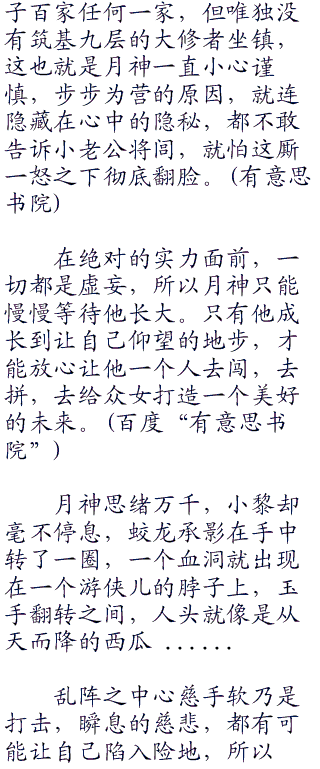 子百家任何一家，但唯独没
有筑基九层的大修者坐镇，
这也就是月神一直小心谨
慎，步步为营的原因，就连
隐藏在心中的隐秘，都不敢
告诉小老公将闾，就怕这厮
一怒之下彻底翻脸。(有意思
书院)
在绝对的实力面前，一
切都是虚妄，所以月神只能
慢慢等待他长大。只有他成
长到让自己仰望的地步，才
能放心让他一个人去闯，去
拼，去给众女打造一个美好
的未来。(百度“有意思书
院”)
月神思绪万千，小黎却
毫不停息，蛟龙承影在手中
转了一圈，一个血洞就出现
在一个游侠儿的脖子上，玉
手翻转之间，人头就像是从
天而降的西瓜 ......
乱阵之中心慈手软乃是
打击，瞬息的慈悲，都有可
能让自己陷入险地，所以